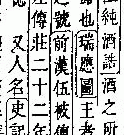 酒誥酒之所
歸也瑞應圖王者
之號前漢伍被傳
左傳莊二十二年
又人名史記